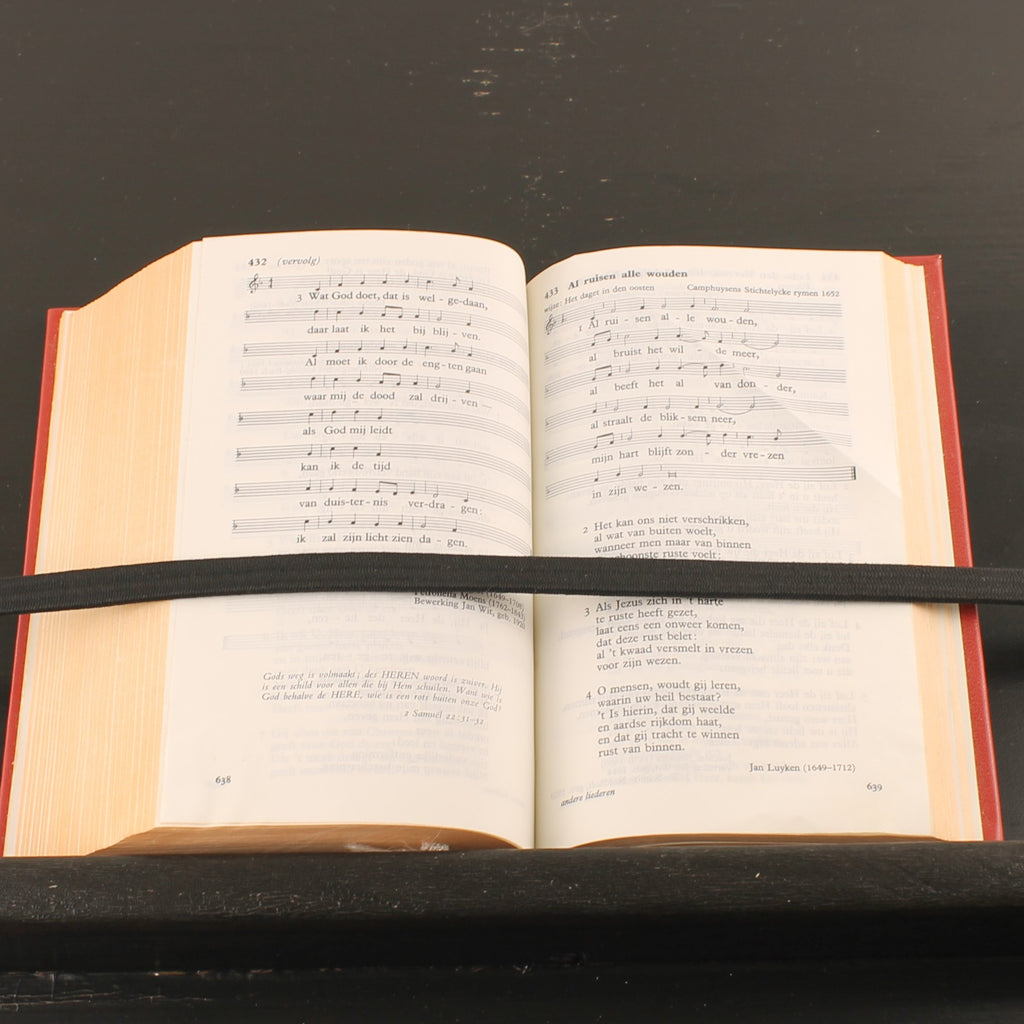 432 (vervolg)
3 Wat God doet, dat is wel - ge-daan,
daar laat ik het bij blij - ven.
Al moet ik door de eng - ten gaan
waar mij de dood zal drij - ven —
als God mij leidt
kan ik de tijd
van duis-ter-nis ver-dra - gen:
ik zal zijn licht zien da - gen.
Petronella Moens (1762-1843)
Bewerking Jan Wit, geb. 1920
Gods weg is volmaakt; des HEREN woord is zuiver. Hij
is een schild voor allen die bij Hem schuilen. Want wie is
God behalve de HERE, wie is een rots buiten onze God?
2 Samuël 22:31-32
638
433 Al ruisen alle wouden
wijze: Het daget in den oosten Camphuysens Stichtelycke rymen 1652
1 Al rui - sen al - le wou - den,
al bruist het wil - de meer,
al beeft het al van don - der,
al straalt de blik-sem neer,
mijn hart blijft zon - der vre-zen
in zijn we - zen.
2 Het kan ons niet verschrikken,
al wat van buiten woelt,
wanneer men maar van binnen
schoonste ruste voelt:
3 Als Jezus zich in 't harte
te ruste heeft gezet,
laat eens een onweer komen,
dat deze rust belet:
al 't kwaad versmelt in vrezen
voor zijn wezen.
4 O mensen, woudt gij leren,
waarin uw heil bestaat?
't Is hierin, dat gij weelde
en aardse rijkdom haat,
en dat gij tracht te winnen
rust van binnen.
Jan Luyken (1649–1712)
andere liederen
639